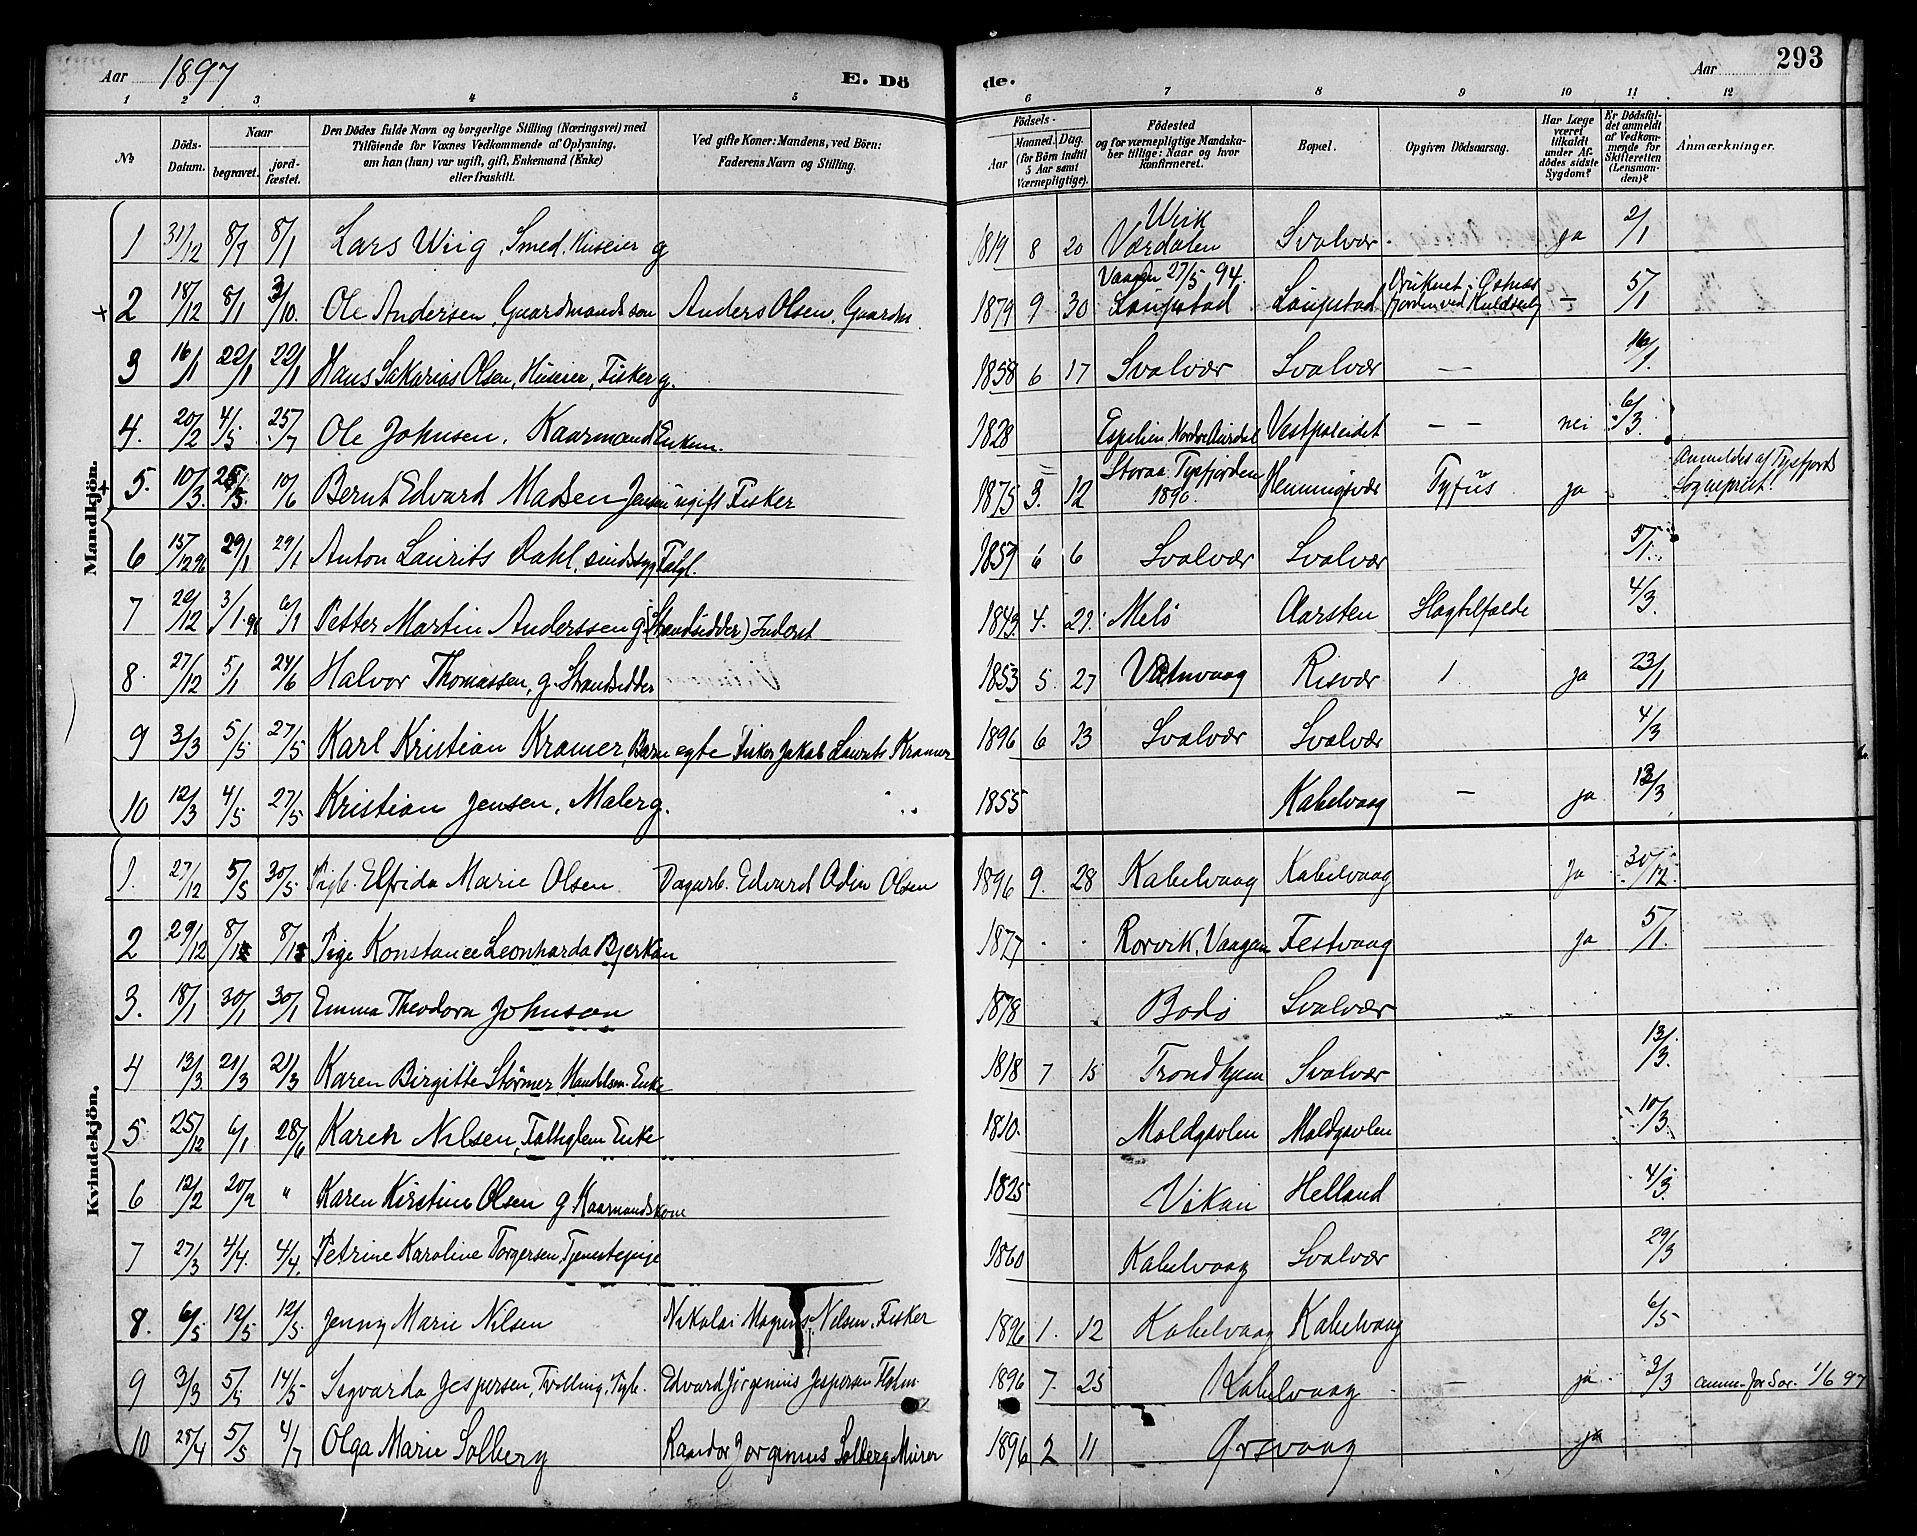 Aar 1897 E. Dö
de. Aar 293
1 2 3 4 5
6 7 8 9 10 11 12
No Döds-Datum. Naar begravet. jord-fæstet. Den Dödes fulde Navn og borgerlige Stilling (Næringsvei) med Tilföiende for Voxnes Vedkommende af Oplysning, om han (hun) var ugift, gift, Enkemand (Enke) eller fraskilt. Ved gifte Koner: Mandens, ved Börn: Faderens Navn og Stilling.
Födsels- Aar Maaned. Dag. (for Börn indtil 5 Aar samt Værnepligtige). Födested og for værnepligtige Mandska-ber tillige: Naar og hvor konfirmeret. Bopæl. Opgiven Dödsaarsag. Har Læge været tilkaldt under Af-dödes sidste Sygdom? Er Dödsfal-det anmeldt af Vedkom-mende for Skifteretten (Lensman-den)? Anmærkninger.
Mandkjön.
1 31/12 8/1 8/1 Lars Wiig, Smed, Huseier g 1819 8 20 Værdalen Svolvær. ja 2/1
+ 2 18/12 8/1 3/10. Ole Andersen, Gaardmandssøn Anders Olsen, Gaardm. 1879 9 30 Vaagan 27/5 94. Laupstad Laupstad Druknet i Østnes fjorden ved — 5/1
3 16/1 22/1 22/1 Hans Sakarias Olsen, Huseier, Fisker g. 1858 6 17 Svolvær Svolvær — 16/1
4. 20/2 4/5 25/7 Ole Johnsen, Kaarmand Enkem. 1828 Espelien Nordre Aurdal Vestpoleidet — — nei 6/3.
+ 5. 10/3. 25/5. 10/6 Bernt Edvard Madsen Jensen ugift Fisker 1875 3. 12 Storaa Tysfjorden 1890. Henningsvær Tyfus ja Anmeldes af Tysfjords Sogneprest.
6 15/12 96 29/1 29/1 Anton Laurits Dahl, sindssyg Fatgl. 1857 6 6 Svolvær Svolvær 5/1.
7 29/12 3/1 98 6/1 Petter Martin Anderssen g. (Strandsidder) Inderst 1843. 4. 29. Melö Aarsten Slagtilfælde 4/3.
8. 27/12 5/1 24/6 Halvor Thomassen, g. Strandsidder 1853 5. 27 Vatnvaag Risvær 1 ja 23/1
9 3/3 5/5 27/5 Karl Kristian Kramer, Barn egte Fisker Jakob Laurits Kramer 1896 6 23 Svolvær Svolvær 4/3
10 12/3 4/5 27/5 Kristian Jensen, Maler g. 1855 Kabelvaag — ja 13/3
Kvindekjön.
1. 27/12 5/5 30/5 Pigb. Elfrida Marie Olsen Dagarb. Edvard Odin Olsen 1896 9. 28 Kabelvaag Kabelvaag Ja 30/12.
2 29/12 8/1 8/1 Pige Konstance Leonharda Bjerkan 1877 Rorvik, Vaagan Festvaag ja 5/1.
3. 18/1 30/1 30/1 Emma Theodora Johnson 1878 Bodø Svolvær
4 13/3 21/3 21/3 Karen Birgitte Størmer, Handelsm. Enke 1818 7 15 Trondhjem Svolvær 13/3.
5 25/12 6/1 28/6 Karen Nilsen, Fattiglem Enke 1810. Moldgavlen Moldgavlen 10/3.
6 12/2 20/2 " Karen Kirstine Olsen g Kaarmandskone 1825 Vikan Helland 4/3.
7 27/3 4/4. 4/4. Petrine Karoline Torgersen, Tjenestepige 1860 Kabelvaag Svolvær 29/3
8. 6/5 12/5 12/5. Jenny Marie Nilsen Nikolai Magnus Nilsen, Fisker 1896 1. 12 Kabelvaag Kabelvaag 6/5
9 3/3 5/5 14/5 Sigvarda Jespersen, Tvilling, Pigb. Edvard Jørgenius Jespersen 1896 7. 25 Kabelvaag — ja 3/3 1/6 97
10 28/4 5/5 4/7 Olga Marie Solberg Jørgenius Solberg Murer 1896 2 11 Ørsvaag ja